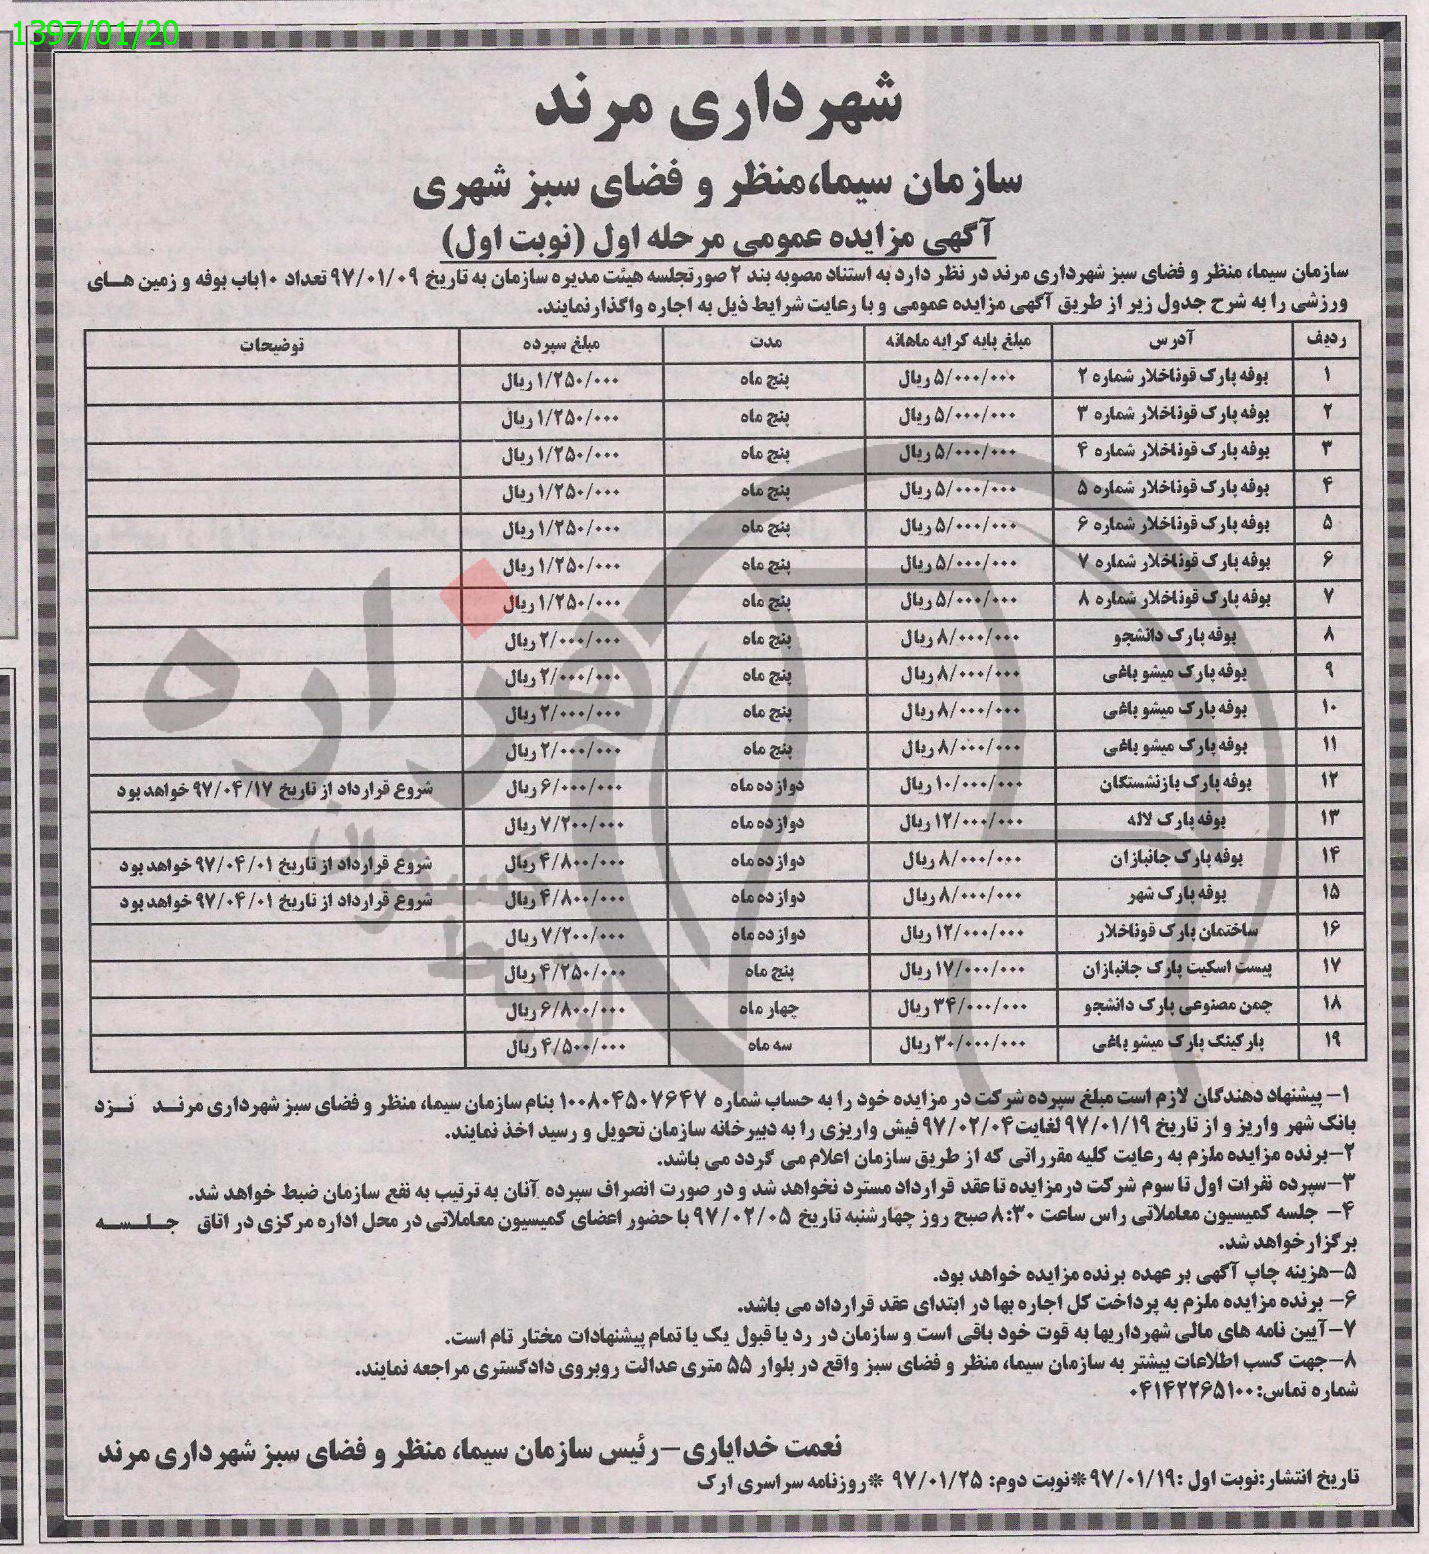 1397/01/20
شهرداری مرند
سازمان سیما،منظر و فضای سبز شهری
آگهی مزایده عمومی مرحله اول (نوبت اول)
سازمان سیما، منظر و فضای سبز شهرداری مرند در نظر دارد به استناد مصوبه بند ۲ صورتجلسه هیئت مدیره سازمان به تاریخ ۹۷/۰۱/۰۹ تعداد ۱۰باب بوفه و زمین هــای
ورزشی را به شرح جدول زیر از طریق آگهی مزایده عمومی و با رعایت شرایط ذیل به اجاره واگذارنمایند.
ردیف آدرس مبلغ پایه کرایه ماهانه مدت مبلغ سپرده توضیحات
۱ بوفه پارک قوناخلار شماره ۲ ۵/۰۰۰/۰۰۰ ریال پنج ماه ۱/۲۵۰/۰۰۰ ریال
۲ بوفه پارک قوناخلار شماره ۳ ۵/۰۰۰/۰۰۰ ریال پنج ماه ۱/۲۵۰/۰۰۰ ریال
۳ بوفه پارک قوناخلار شماره ۴ ۵/۰۰۰/۰۰۰ ریال پنج ماه ۱/۲۵۰/۰۰۰ ریال
۴ بوفه پارک قوناخلار شماره ۵ ۵/۰۰۰/۰۰۰ ریال پنج ماه ۱/۲۵۰/۰۰۰ ریال
۵ بوفه پارک قوناخلار شماره ۶ ۵/۰۰۰/۰۰۰ ریال پنج ماه ۱/۲۵۰/۰۰۰ ریال
۶ بوفه پارک قوناخلار شماره ۷ ۵/۰۰۰/۰۰۰ ریال پنج ماه ۱/۲۵۰/۰۰۰ ریال
۷ بوفه پارک قوناخلار شماره ۸ ۵/۰۰۰/۰۰۰ ریال پنج ماه ۱/۲۵۰/۰۰۰ ریال
۸ بوفه پارک دانشجو ۸/۰۰۰/۰۰۰ ریال پنج ماه ۲/۰۰۰/۰۰۰ ریال
۹ بوفه پارک میشو باغی ۸/۰۰۰/۰۰۰ ریال پنج ماه ۲/۰۰۰/۰۰۰ ریال
۱۰ بوفه پارک میشو باغی ۸/۰۰۰/۰۰۰ ریال پنج ماه ۲/۰۰۰/۰۰۰ ریال
۱۱ بوفه پارک میشو باغی ۸/۰۰۰/۰۰۰ ریال پنج ماه ۲/۰۰۰/۰۰۰ ریال
۱۲ بوفه پارک بازنشستگان ۱۰/۰۰۰/۰۰۰ ریال دوازده ماه ۶/۰۰۰/۰۰۰ ریال شروع قرارداد از تاریخ ۹۷/۰۴/۱۷ خواهد بود
۱۳ بوفه پارک لاله ۱۲/۰۰۰/۰۰۰ ریال دوازده ماه ۷/۲۰۰/۰۰۰ ریال
۱۴ بوفه پارک جانبازان ۸/۰۰۰/۰۰۰ ریال دوازده ماه ۴/۸۰۰/۰۰۰ ریال شروع قرارداد از تاریخ ۹۷/۰۴/۰۱ خواهد بود
۱۵ بوفه پارک شهر ۸/۰۰۰/۰۰۰ ریال دوازده ماه ۴/۸۰۰/۰۰۰ ریال شروع قرارداد از تاریخ ۹۷/۰۴/۰۱ خواهد بود
۱۶ ساختمان پارک قوناخلار ۱۲/۰۰۰/۰۰۰ ریال دوازده ماه ۷/۲۰۰/۰۰۰ ریال
۱۷ پیست اسکیت پارک جانبازان ۱۷/۰۰۰/۰۰۰ ریال پنج ماه ۴/۲۵۰/۰۰۰ ریال
۱۸ چمن مصنوعی پارک دانشجو ۳۴/۰۰۰/۰۰۰ ریال چهار ماه ۶/۸۰۰/۰۰۰ ریال
۱۹ پارکینگ پارک میشو باغی ۳۰/۰۰۰/۰۰۰ ریال سه ماه ۴/۵۰۰/۰۰۰ ریال
۱- پیشنهاد دهندگان لازم است مبلغ سپرده شرکت در مزایده خود را به حساب شماره ۱۰۰۸۰۴۵۰۷۶۴۷ بنام سازمان سیما، منظر و فضای سبز شهرداری مرنـد نـزد
بانک شهر واریز و از تاریخ ۹۷/۰۱/۱۹ لغایت۹۷/۰۲/۰۴ فیش واریزی را به دبیرخانه سازمان تحویل و رسید اخذ نمایند.
۲-برنده مزایده ملزم به رعایت کلیه مقرراتی که از طریق سازمان اعلام می گردد می باشد.
۳-سپرده نفرات اول تا سوم شرکت درمزایده تا عقد قرارداد مسترد نخواهد شد و در صورت انصراف سپرده آنان به ترتیب به نفع سازمان ضبط خواهد شد.
۴- جلسه کمیسیون معاملاتی راس ساعت ۸:۳۰ صبح روز چهارشنبه تاریخ ۹۷/۰۲/۰۵ با حضور اعضای کمیسیون معاملاتی در محل اداره مرکزی در اتاق جلــسه
برگزارخواهد شد.
۵-هزینه چاپ آگهی بر عهده برنده مزایده خواهد بود.
۶- برنده مزایده ملزم به پرداخت کل اجاره بها در ابتدای عقد قرارداد می باشد.
۷-آیین نامه های مالی شهرداریها به قوت خود باقی است و سازمان در رد یا قبول یک یا تمام پیشنهادات مختار تام است.
۸-جهت کسب اطلاعات بیشتر به سازمان سیما، منظر و فضای سبز واقع در بلوار ۵۵ متری عدالت روبروی دادگستری مراجعه نمایند.
شماره تماس:۰۴۱۴۲۲۶۵۱۰۰
نعمت خدایاری-رئیس سازمان سیما، منظر و فضای سبز شهرداری مرند
تاریخ انتشار:نوبت اول :۹۷/۰۱/۱۹*نوبت دوم: ۹۷/۰۱/۲۵ *روزنامه سراسری ارک
هزاره